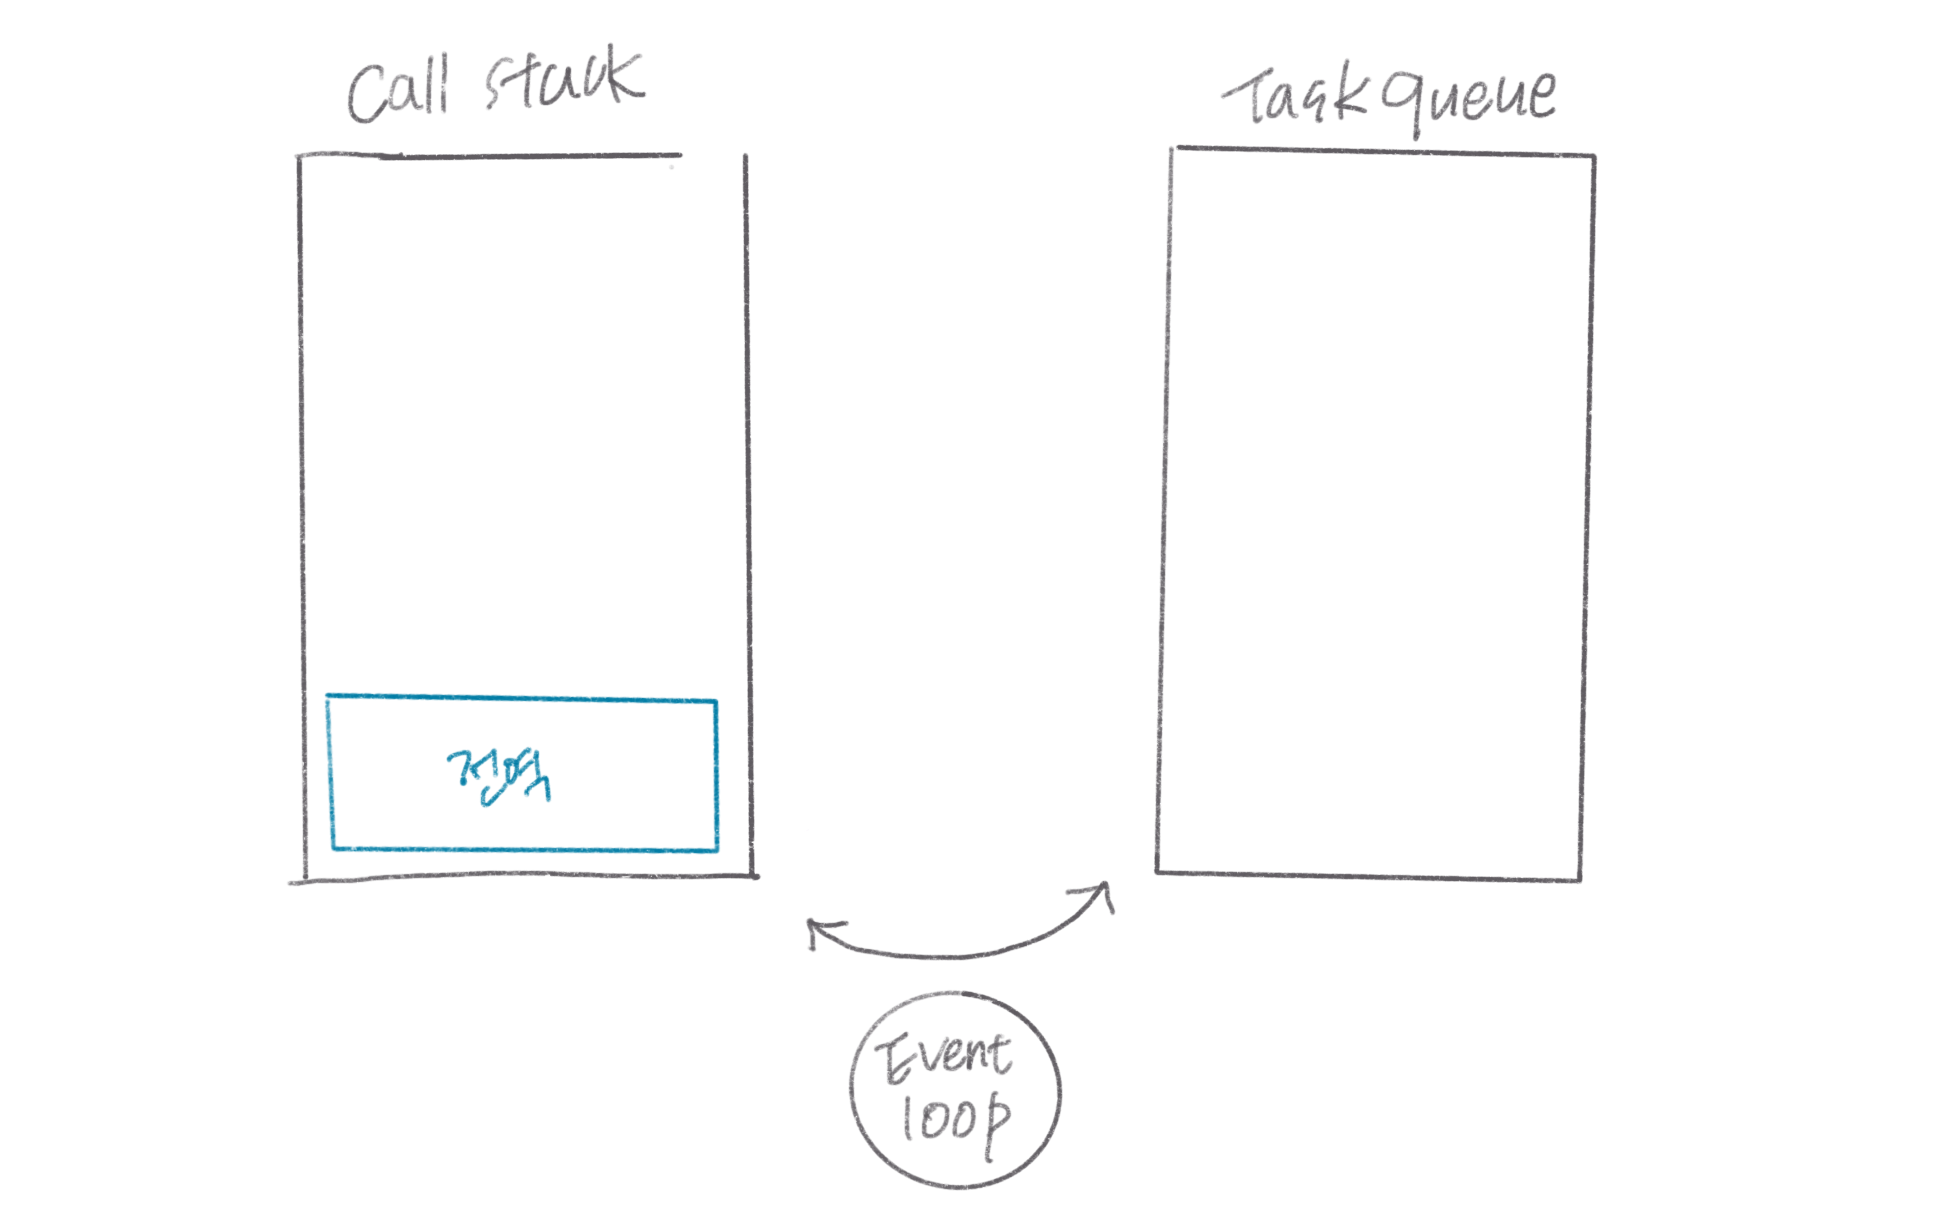 Call stack
Task queue
전역
Event
loop